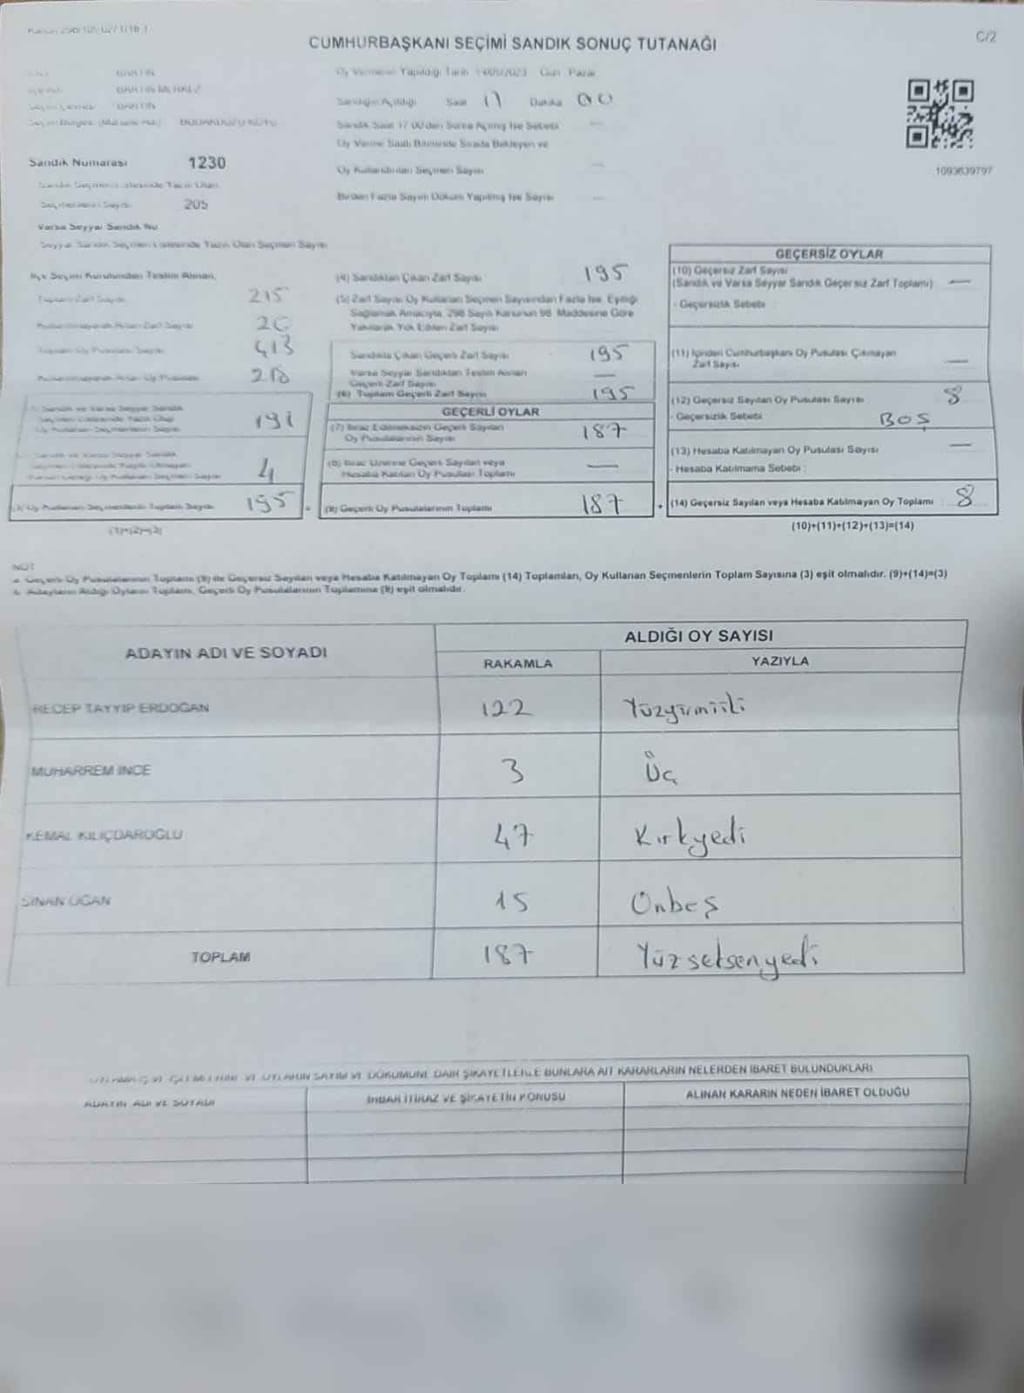 CUMHURBAŞKANI SEÇİMİ SANDIK SONUÇ TUTANAĞI
C/2
BARTIN
BARTIN MERKEZ
BARTIN
Oy Vermenin Yapıldığı Tarih 14/05/2023 Gün Pazar
Sandığın Açıldığı Saat 17 Dakika 00
Sandık Saat 17:00'den Sonra Açılmış İse Sebebi —
Oy Verme Saati Bitiminde Sırada Bekleyen ve
Oy Kullandırılan Seçmen Sayısı —
Birden Fazla Sayım Döküm Yapılmış İse Sayısı —
1093639797
Sandık Numarası 1230
Sandık Seçmen Listesinde Yazılı Olan
Seçmenlerin Sayısı 205
Varsa Seyyar Sandık No
Seyyar Sandık Seçmen Listesinde Yazılı Olan Seçmen Sayısı
İlçe Seçim Kurulundan Teslim Alınan,
Toplam Zarf Sayısı 215
Kullanılmayarak Artan Zarf Sayısı 20
Toplam Oy Pusulası Sayısı 413
Kullanılmayarak Artan Oy Pusulası 218
191
4
(3) Oy Kullanan Seçmenlerin Toplam Sayısı 195
(1)+(2)=(3)
(4) Sandıktan Çıkan Zarf Sayısı 195
(5) Zarf Sayısı Oy Kullanan Seçmen Sayısından Fazla İse, Eşitliği
Sağlamak Amacıyla, 298 Sayılı Kanunun 98. Maddesine Göre
Yakılarak Yok Edilen Zarf Sayısı
Sandıkta Çıkan Geçerli Zarf Sayısı 195
Varsa Seyyar Sandıktan Teslim Alınan
Geçerli Zarf Sayısı —
(6) Toplam Geçerli Zarf Sayısı 195
GEÇERLİ OYLAR
(7) İtiraz Edilmeksizin Geçerli Sayılan
Oy Pusulalarının Sayısı 187
(8) İtiraz Üzerine Geçerli Sayılan veya
Hesaba Katılan Oy Pusulası Toplamı —
(9) Geçerli Oy Pusulalarının Toplamı 187
GEÇERSİZ OYLAR
(10) Geçersiz Zarf Sayısı
(Sandık ve Varsa Seyyar Sandık Geçersiz Zarf Toplamı) —
- Geçersizlik Sebebi :
(11) İçinden Cumhurbaşkanı Oy Pusulası Çıkmayan
Zarf Sayısı —
(12) Geçersiz Sayılan Oy Pusulası Sayısı 8
- Geçersizlik Sebebi : BOŞ
(13) Hesaba Katılmayan Oy Pusulası Sayısı —
- Hesaba Katılmama Sebebi :
(14) Geçersiz Sayılan veya Hesaba Katılmayan Oy Toplamı 8
(10)+(11)+(12)+(13)=(14)
NOT:
a- Geçerli Oy Pusulalarının Toplamı (9) ile Geçersiz Sayılan veya Hesaba Katılmayan Oy Toplamı (14) Toplamları, Oy Kullanan Seçmenlerin Toplam Sayısına (3) eşit olmalıdır. (9)+(14)=(3)
b- Adayların Aldığı Oyların Toplamı, Geçerli Oy Pusulalarının Toplamına (9) eşit olmalıdır.
ADAYIN ADI VE SOYADI
ALDIĞI OY SAYISI
RAKAMLA YAZIYLA
RECEP TAYYİP ERDOĞAN 122 Yüzyirmiiki
MUHARREM İNCE 3 Üç
KEMAL KILIÇDAROĞLU 47 Kırkyedi
SİNAN OĞAN 15 Onbeş
TOPLAM 187 Yüzseksenyedi
VE OYLARIN SAYIM VE DÖKÜMÜNE DAİR ŞİKAYETLERLE BUNLARA AİT KARARLARIN NELERDEN İBARET BULUNDUKLARI
ADAYIN ADI VE SOYADI İHBAR İTİRAZ VE ŞİKAYETİN KONUSU ALINAN KARARIN NEDEN İBARET OLDUĞU